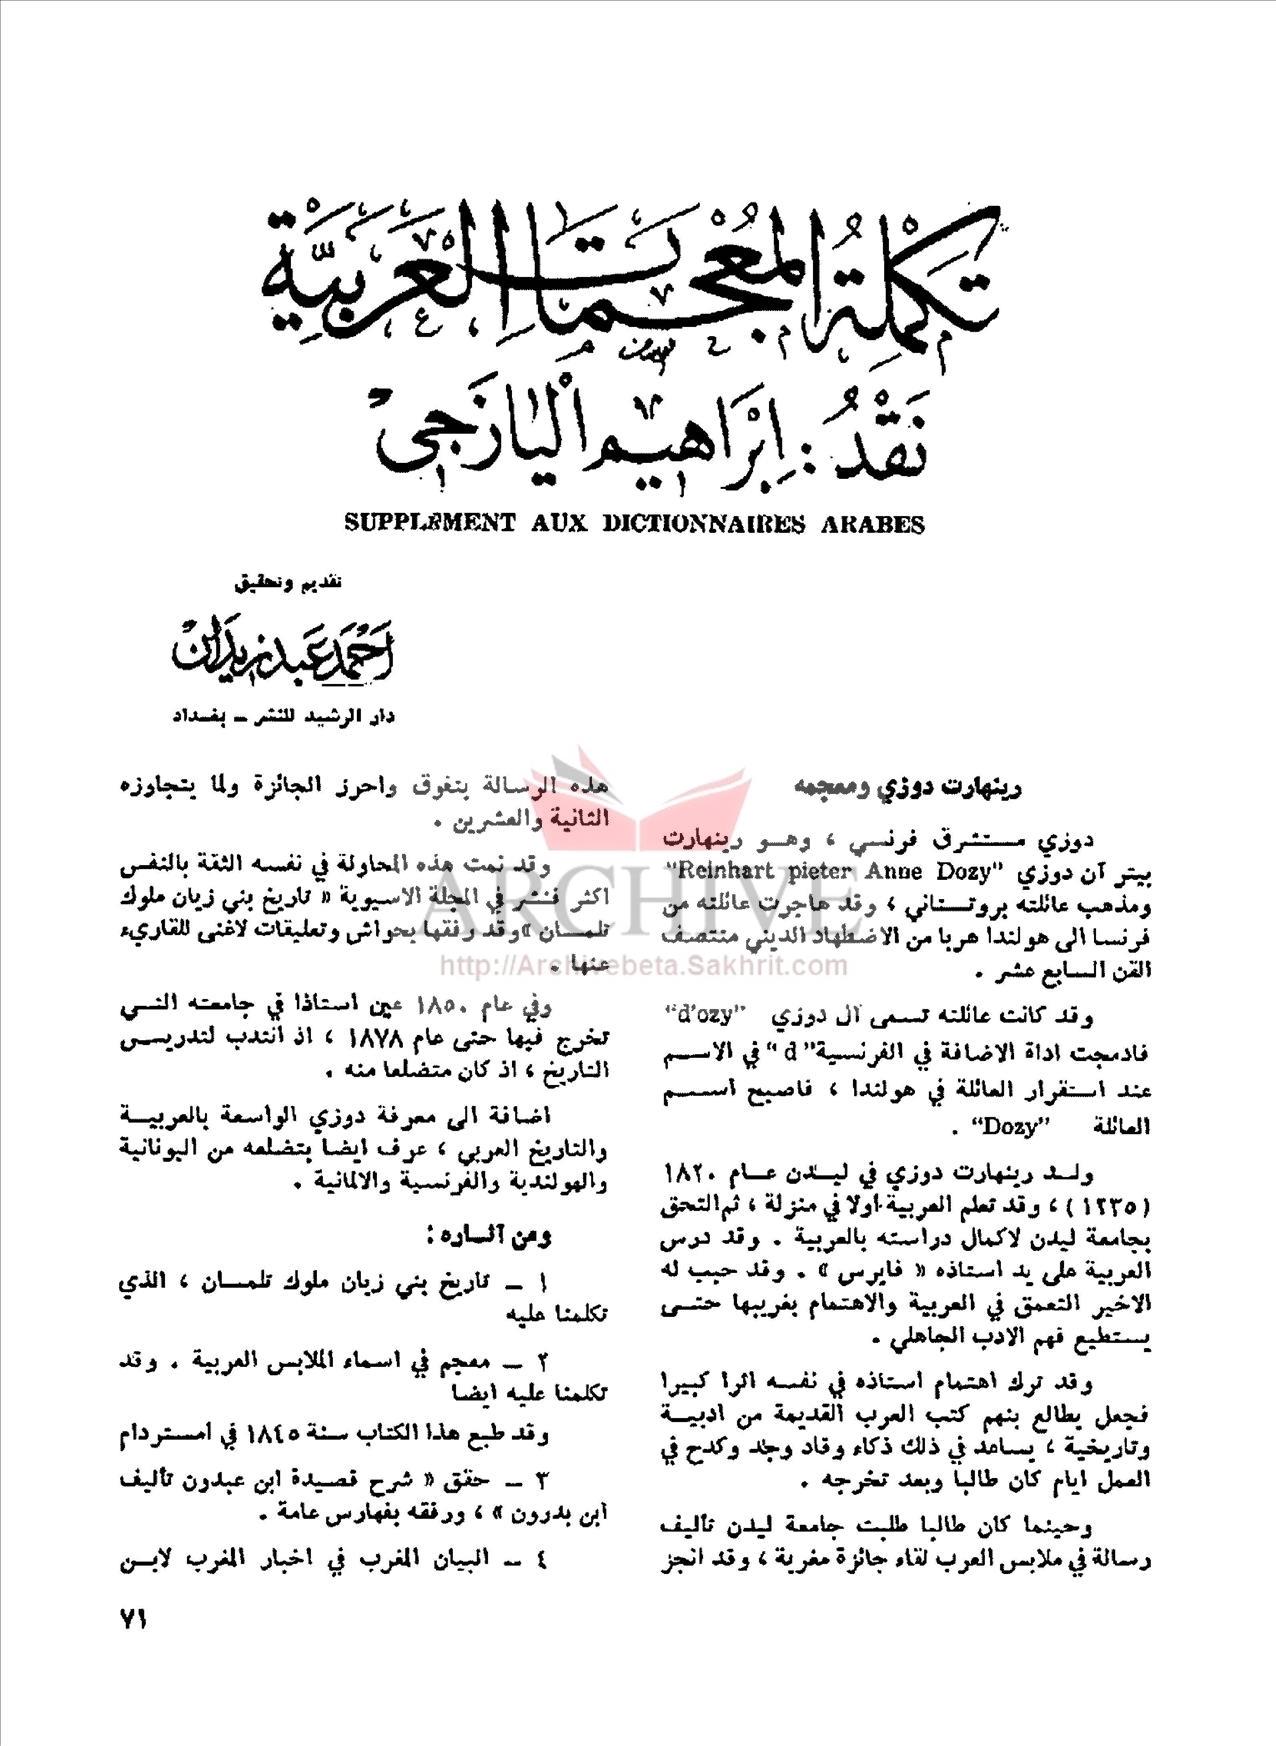 تكملة المعجمات العربية
نقد : ابراهيم اليازجي
SUPPLEMENT AUX DICTIONNAIRES ARABES
تقديم وتحقيق
احمد عبد زيدان
دار الرشيد للنشر ــ بغداد
رينهارت دوزي ومعجمه
دوزي مستشرق فرنسي ، وهو رينهارت
بيتر آن دوزي "Reinhart pieter Anne Dozy"
ومذهب عائلته بروتستاني ، وقد هاجرت عائلته من
فرنسا الى هولندا هربا من الاضطهاد الديني منتصف
القن السابع عشر .
وقد كانت عائلته تسمى آل دوزي "d'ozy"
فادمجت اداة الاضافة في الفرنسية "d" في الاسم
عند استقرار العائلة في هولندا ، فاصبح اسم
العائلة "Dozy" .
ولد رينهارت دوزي في ليدن عام ١٨٢٠
(١٢٣٥) ، وقد تعلم العربية اولا في منزلة ، ثم التحق
بجامعة ليدن لاكمال دراسته بالعربية . وقد درس
العربية على يد استاذه « فايرس » . وقد حبب له
الاخير التعمق في العربية والاهتمام بغريبها حتى
يستطيع فهم الادب الجاهلي .
وقد ترك اهتمام استاذه في نفسه اثرا كبيرا
فجعل يطالع بنهم كتب العرب القديمة من ادبية
وتاريخية ، يساعد في ذلك ذكاء وقاد وجد وكدح في
العمل ايام كان طالبا وبعد تخرجه .
وحينما كان طالبا طلبت جامعة ليدن تأليف
رسالة في ملابس العرب لقاء جائزة مغرية ، وقد انجز
هذه الرسالة بتفوق واحرز الجائزة ولما يتجاوزه
الثانية والعشرين .
وقد نمت هذه المحاولة في نفسه الثقة بالنفس
اكثر فنشر في المجلة الاسيوية « تاريخ بني زيان ملوك
تلمسان » وقد رفقها بحواش وتعليقات لاغنى للقاريء
عنها .
وفي عام ١٨٥٠ عين استاذا في جامعته التي
تخرج فيها حتى عام ١٨٧٨ ، اذ انتدب لتدريس
التاريخ ، اذ كان متضلعا منه .
اضافة الى معرفة دوزي الواسعة بالعربية
والتاريخ العربي ، عرف ايضا بتضلعه من اليونانية
والهولندية والفرنسية والالمانية .
ومن آثاره :
١ ــ تاريخ بني زيان ملوك تلمسان ، الذي
تكلمنا عليه
٢ ــ معجم في اسماء الملابس العربية . وقد
تكلمنا عليه ايضا
وقد طبع هذا الكتاب سنة ١٨٤٥ في امستردام
٣ ــ حقق « شرح قصيدة ابن عبدون تأليف
ابن بدرون » ، ورفقه بفهارس عامة .
٤ ــ البيان المغرب في اخبار المغرب لابن
٧١
ARCHIVE
http://Archivebeta.Sakhrit.com